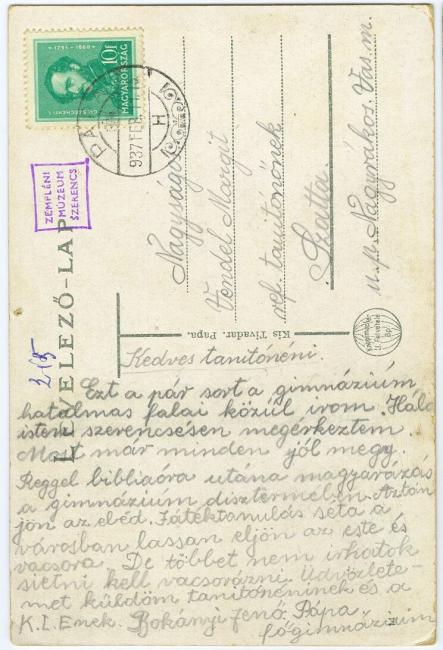 10f
MAGYARORSZÁG
GR. SZÉCHENYI
1791-1860
PÁPA
937 FEB
H
ZEMPLÉNI
MÚZEUM
SZERENCS
LEVELEZŐ-LAP
Nagyságos
Vendel Margit
ref. tanítónőnek
Szatta.
u.p. Nagyrákos. Vas. m.
Kis Tivadar, Pápa.
215
Kedves tanítónéni.
Ezt a pár sort a gimnázium
hatalmas falai közül irom. Hála
isten szerencsésen megérkeztem
Most már minden jól megy.
Reggel bibliaóra utána magyarázás
a gimnázium dísztermében. Aztán
jön az ebéd. Játék tanulás séta a
városban lassan eljön az este és
vacsora. De többet nem irhatok
sietni kell vacsorázni. Üdvözlete-
met küldöm tanitóneninek és a
K.I.Enek. Bokányi Jenő. Pápa
főgimnázium